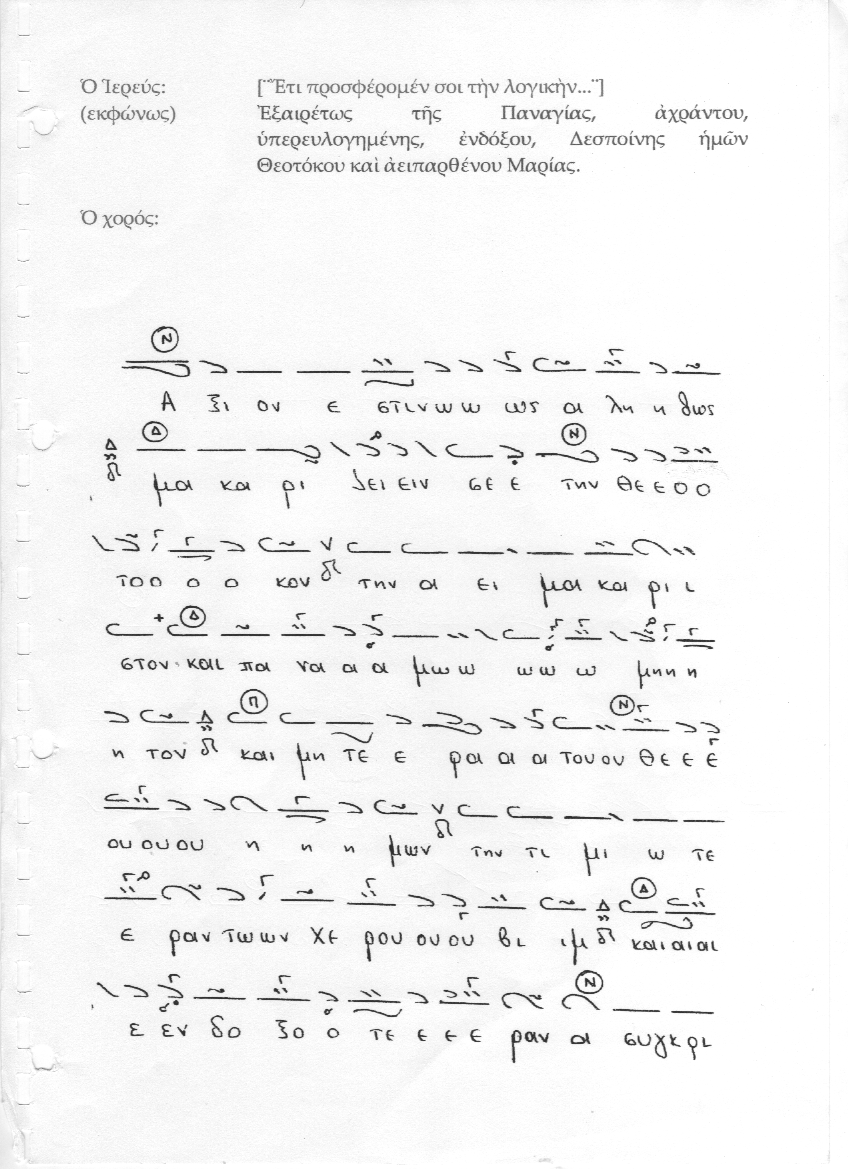 Ὁ Ἱερεύς: [¨Ἔτι προσφέρομέν σοι τὴν λογικὴν...¨]
(εκφώνως) Ἐξαιρέτως τῆς Παναγίας, ἀχράντου,
ὑπερευλογημένης, ἐνδόξου, Δεσποίνης ἡμῶν
Θεοτόκου καὶ ἀειπαρθένου Μαρίας.
Ὁ χορός:
Α ξι ον ε στινωω ως αι λη η θως
μα κα ρι ζει ειν σε ε την θε ε ο ο
το ο ο ο κον την α ει μα κα ρι ι
στον και πα να α α μω ω ω ω ω μη η η
η τον και μη τε ε ρα α α α του ου θε ε ε
ου ου ου η η η μων την τι μι ω τε
ε ραν τω ων χε ρου ου ου βι ιμ και αι αι
ε εν δο ξο ο τε ε ε ε ραν α συγκρι